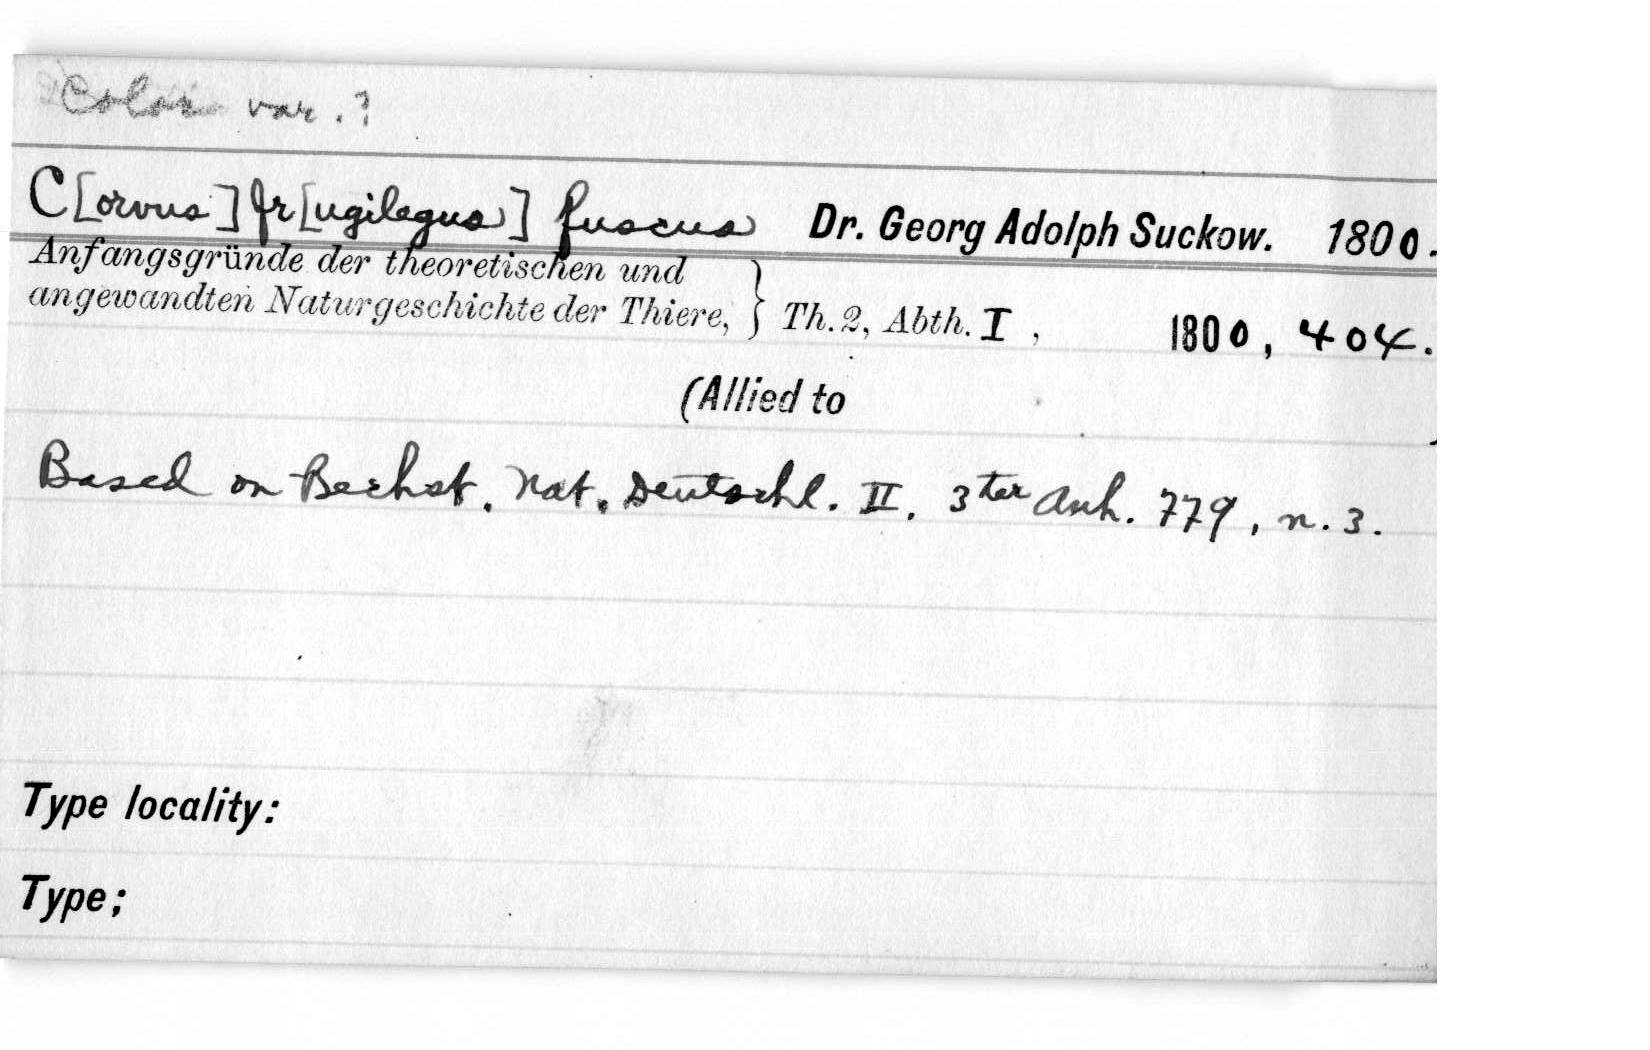 Color var. ?
C[orvus] fr[ugilegus] fuscus Dr. Georg Adolph Suckow. 1800.
Anfangsgründe der theoretischen und
angewandten Naturgeschichte der Thiere, } Th. 2, Abth. I , 1800, 404.
(Allied to
Based on Bechst. Nat. Deutschl. II. 3ter Anh. 779, n. 3.
Type locality:
Type;